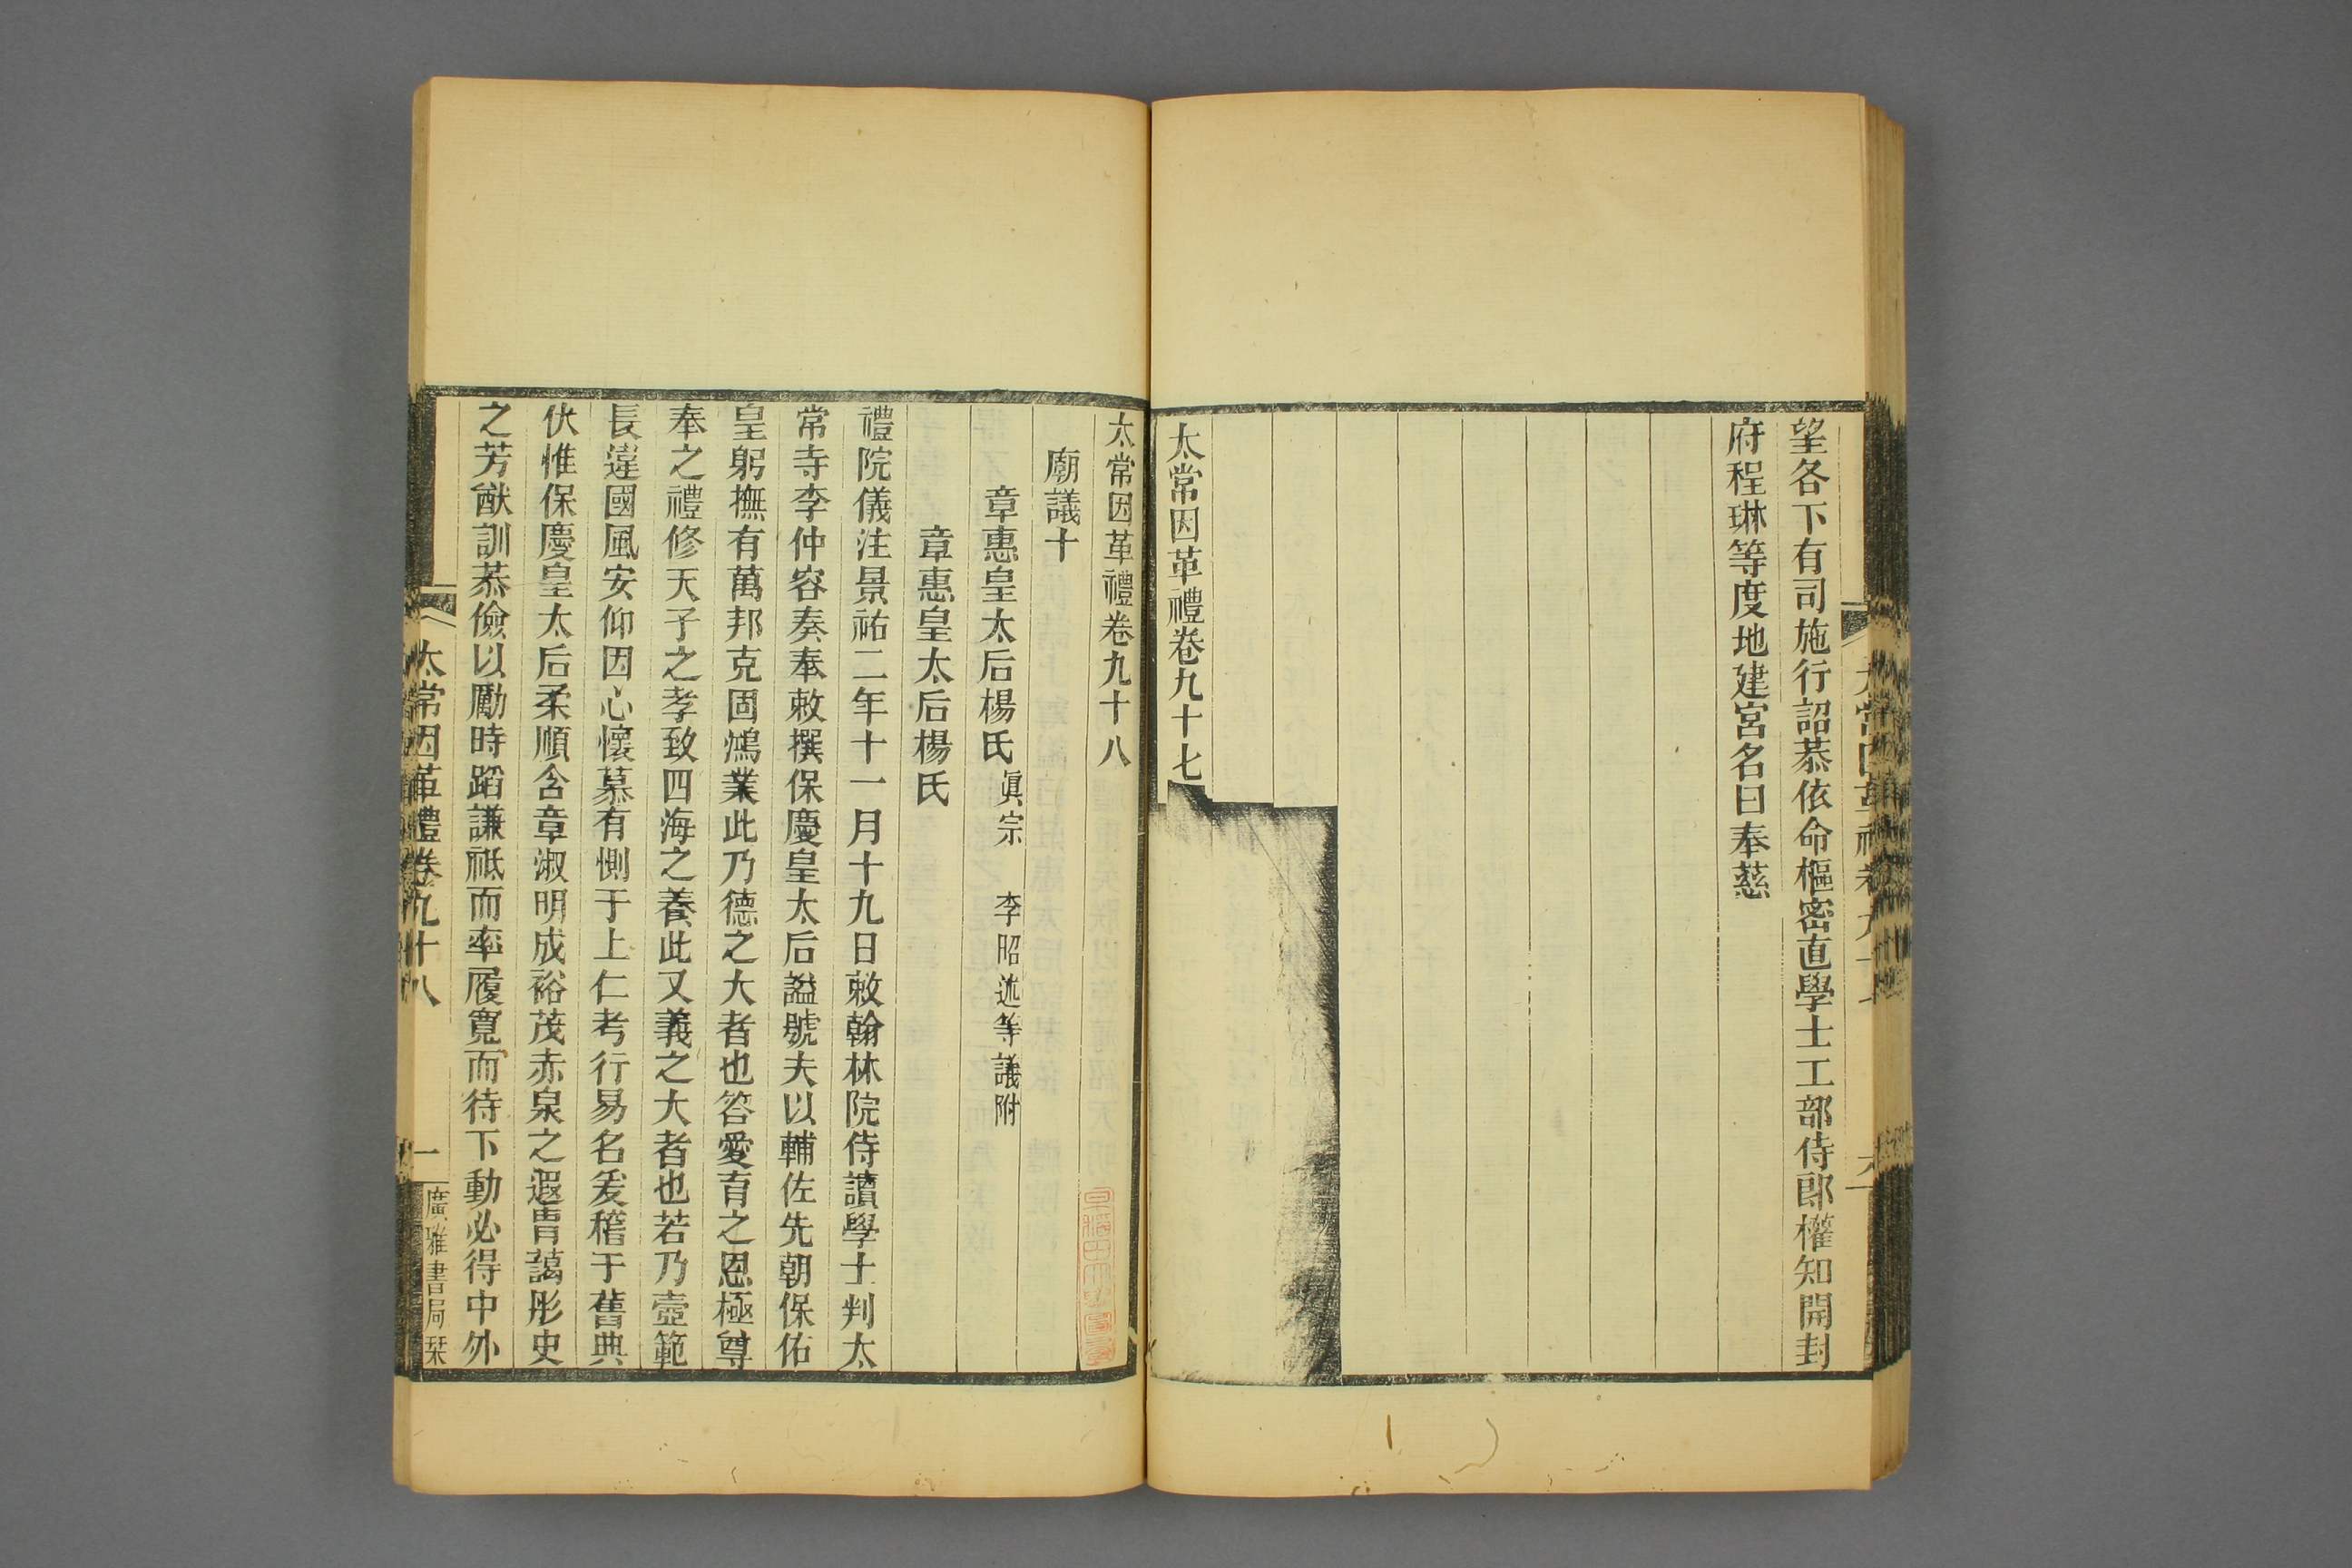 望各下有司施行詔恭依命樞密直學士工部侍郎權知開封
府程琳等度地建宮名曰奉慈
太常因革禮卷九十七
太常因革禮卷九十八
廟議十
章惠皇太后楊氏眞宗 李昭述等議附
章惠皇太后楊氏
禮院儀注景祐二年十一月十九日敕翰林院侍讀學士判太
常寺李仲容奏奉敕撰保慶皇太后謚號夫以輔佐先朝保佑
皇躬撫有萬邦克固鴻業此乃德之大者也答愛育之恩極尊
奉之禮修天子之孝致四海之養此又義之大者也若乃壼範
長違國風安仰因心懷慕有惻于上仁考行易名爰稽于舊典
伏惟保慶皇太后柔順含章淑明成裕茂赤泉之遐胄藹彤史
之芳猷訓恭儉以勵時蹈謙祗而率履寬而待下動必得中外
太常因革禮卷九十八 一 廣雅書局栞